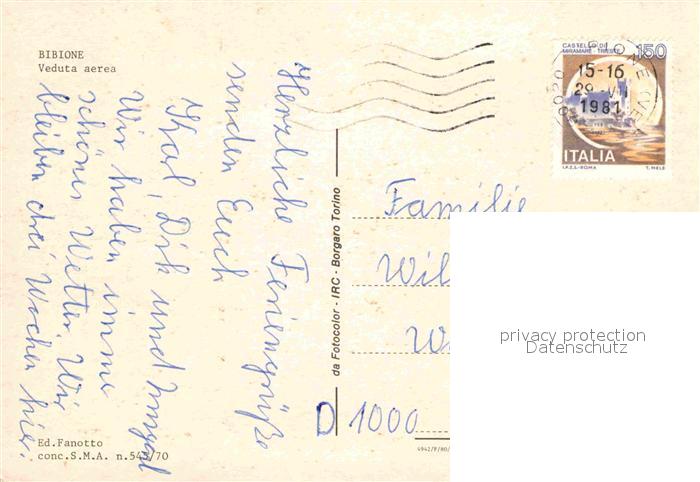 BIBIONE
Veduta aerea
Herzliche Feriengrüße
senden Euch
Karl, Dirk und Irmgard
Wir haben imme
schönes Wetter. Wir
bleiben drei Wochen hier.
Ed.Fanotto
conc.S.M.A. n.543/70
da Fotocolor - IRC - Borgaro Torino
CASTELLO DI
MIRAMARE - TRIESTE
150
15-16
1981
ITALIA
I.P.Z.S.-ROMA
T. MELE
Familie
Wil
W
D 1000
4942/P/80/
privacy protection
Datenschutz